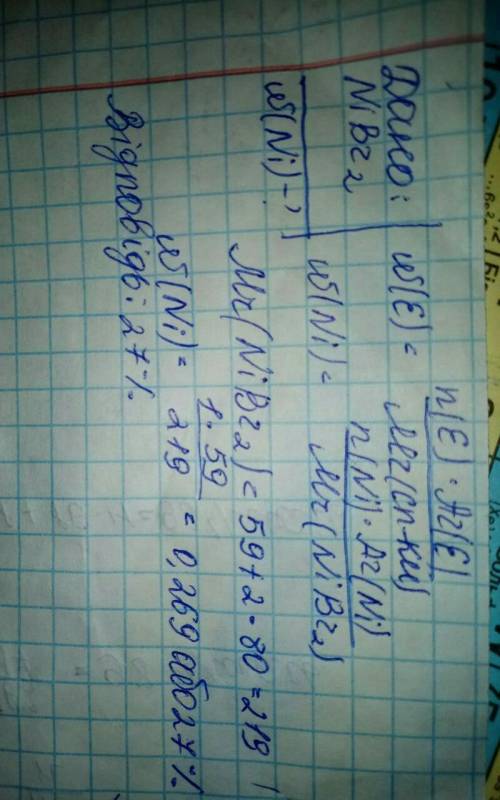 Дано:
NiBr₂
w(Ni) - ?
w(E) = n(E) · Ar(E) / Mr(сп-ки)
w(Ni) = n(Ni) · Ar(Ni) / Mr(NiBr₂)
Mr(NiBr₂) = 59 + 2 · 80 = 219
w(Ni) = 1 · 59 / 219 = 0,269 або 27%
Відповідь: 27%